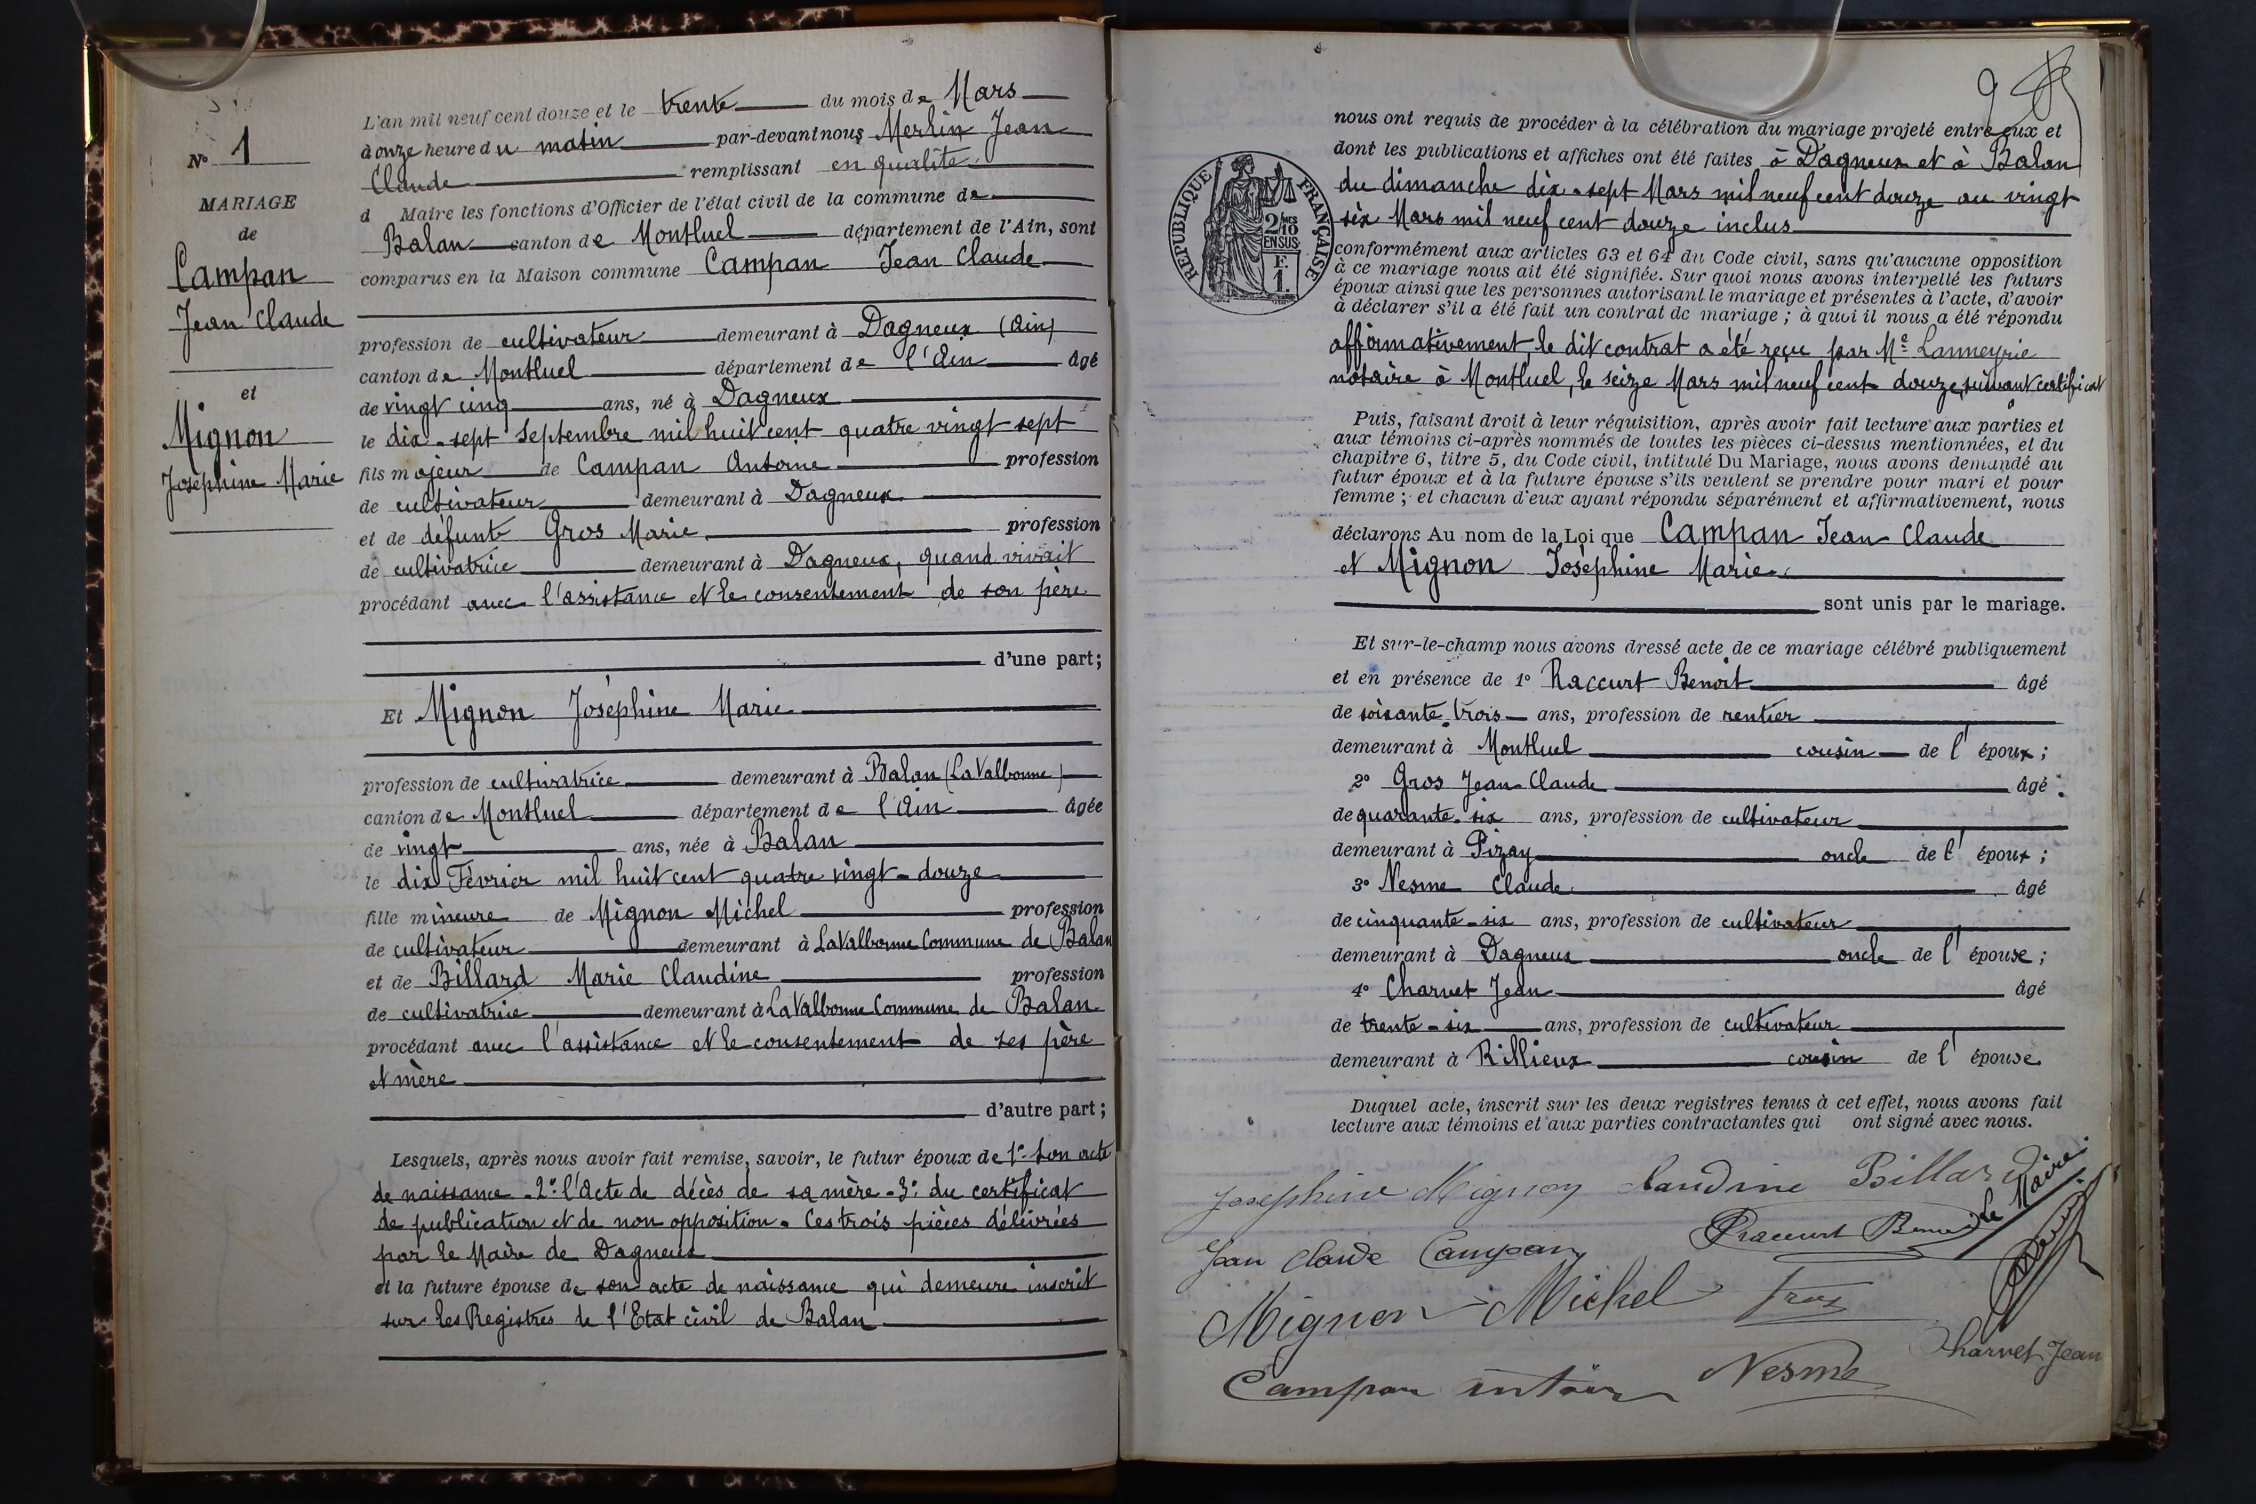 N° 1
MARIAGE
de
Campan
Jean Claude
et
Mignon
Joséphine Marie
L'an mil neuf cent douze et le trente du mois de Mars
à onze heure du matin par-devant nous Merlin Jean
Claude remplissant en qualité
d Maire les fonctions d'Officier de l'état civil de la commune de
Balan canton de Montluel département de l'Ain, sont
comparus en la Maison commune Campan Jean Claude
profession de cultivateur demeurant à Dagneux (Ain)
canton de Montluel département de l'Ain âgé
de vingt cinq ans, né à Dagneux
le dix-sept Septembre mil huit cent quatre vingt sept
fils majeur de Campan Antoine profession
de cultivateur demeurant à Dagneux
et de défunte Gros Marie profession
de cultivatrice demeurant à Dagneux, quand vivait
procédant avec l'assistance et le consentement de son père
d'une part;
Et Mignon Joséphine Marie
profession de cultivatrice demeurant à Balan (La Valbonne)
canton de Montluel département de l'Ain âgée
de vingt ans, née à Balan
le dix Février mil huit cent quatre vingt-douze
fille mineure de Mignon Michel profession
de cultivateur demeurant à La Valbonne Commune de Balan
et de Billard Marie Claudine profession
de cultivatrice demeurant à La Valbonne Commune de Balan
procédant avec l'assistance et le consentement de ses père
et mère
d'autre part;
Lesquels, après nous avoir fait remise, savoir, le futur époux de 1° son acte
de naissance - 2° l'acte de décès de sa mère - 3° du certificat
de publication et de non opposition. Ces trois pièces délivrées
par le Maire de Dagneux
et la future épouse de son acte de naissance qui demeure inscrit
sur les Registres de l'Etat civil de Balan
9
nous ont requis de procéder à la célébration du mariage projeté entre eux et
dont les publications et affiches ont été faites à Dagneux et à Balan
du dimanche dix-sept Mars mil neuf cent douze au vingt
six Mars mil neuf cent douze inclus
RÉPUBLIQUE FRANÇAISE
2/10 EN SUS
F. 1.
conformément aux articles 63 et 64 du Code civil, sans qu'aucune opposition
à ce mariage nous ait été signifiée. Sur quoi nous avons interpellé les futurs
époux ainsi que les personnes autorisant le mariage et présentes à l'acte, d'avoir
à déclarer s'il a été fait un contrat de mariage ; à quoi il nous a été répondu
affirmativement, le dit contrat a été reçu par Me Lanneyrie
notaire à Montluel, le seize Mars mil neuf cent douze, suivant certificat
Puis, faisant droit à leur réquisition, après avoir fait lecture aux parties et
aux témoins ci-après nommés de toutes les pièces ci-dessus mentionnées, et du
chapitre 6, titre 5, du Code civil, intitulé Du Mariage, nous avons demandé au
futur époux et à la future épouse s'ils veulent se prendre pour mari et pour
femme ; et chacun d'eux ayant répondu séparément et affirmativement, nous
déclarons Au nom de la Loi que Campan Jean Claude
et Mignon Joséphine Marie
sont unis par le mariage.
Et sur-le-champ nous avons dressé acte de ce mariage célébré publiquement
et en présence de 1° Raccurt Benoit âgé
de soixante trois ans, profession de rentier
demeurant à Montluel cousin de l'époux ;
2° Gros Jean Claude âgé
de quarante-six ans, profession de cultivateur
demeurant à Pizay oncle de l'époux ;
3° Nesme Claude âgé
de cinquante-six ans, profession de cultivateur
demeurant à Dagneux oncle de l'épouse ;
4° Charvet Jean âgé
de trente-six ans, profession de cultivateur
demeurant à Rillieux cousin de l'épouse
Duquel acte, inscrit sur les deux registres tenus à cet effet, nous avons fait
lecture aux témoins et aux parties contractantes qui ont signé avec nous.
Josephine Mignon Claudine Billard
Le Maire
Jean Claude Campan Raccurt Benoit
Mignon Michel Gros
Charvet Jean
Campan antoine Nesme